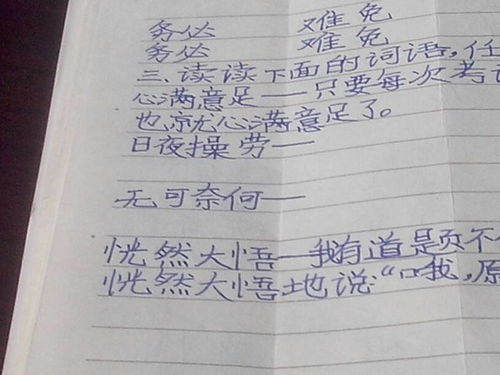 务必 难免
务必 难免
三、读读下面的词语,任
心满意足——只要每次考
也就心满意足了。
日夜操劳——
无可奈何——
恍然大悟——我有道是页不
恍然大悟地说“哦,原